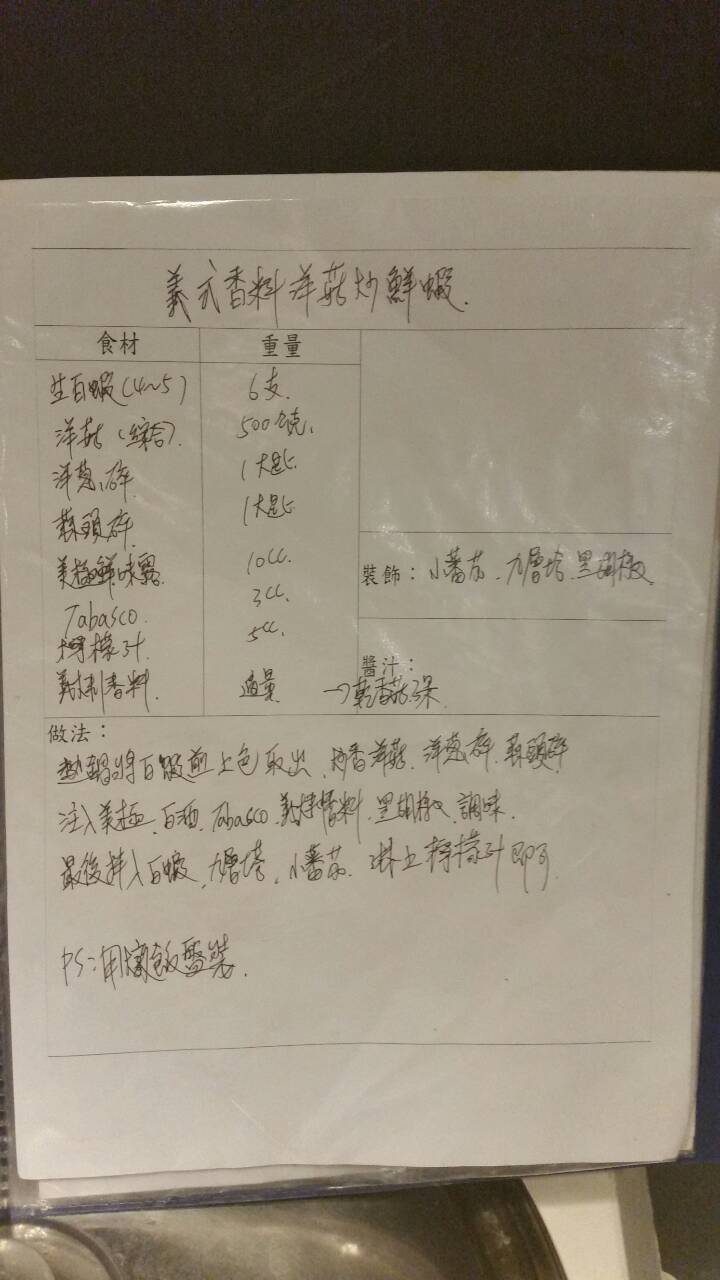 義式香料洋菇炒鮮蝦.
食材 重量
生白蝦(4~5) 6支.
洋菇(綜合). 500公克.
洋蔥碎 1大匙
蒜頭碎 1大匙
美極鮮味露 10cc.
Tabasco. 3cc.
檸檬汁 5cc.
義式香料. 適量 →乾香菇3朵
裝飾：小蕃茄、九層塔.黑胡椒.
醬汁：
做法：
熱鍋將白蝦煎上色取出、炒香洋菇、洋蔥碎.蒜頭碎
注入美極、白酒、Tabasco、義式香料.黑胡椒、調味.
最後拌入白蝦、九層塔、小蕃茄.淋上檸檬汁即可.
PS:用燉飯盤裝.